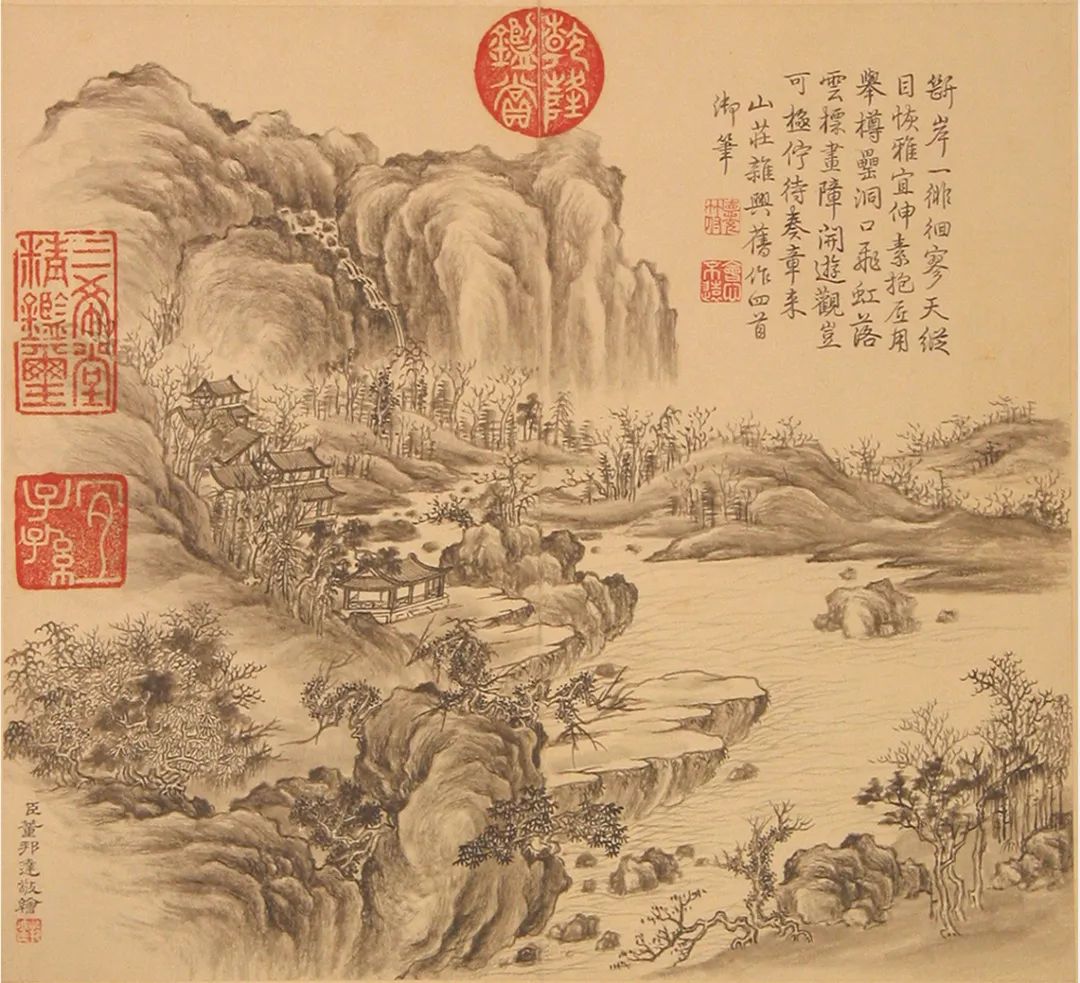 斷岸一徘徊寥天縱
目恢雅宜伸素抱叵用
舉樽罍洞口飛虹落
雲標畫障開遊觀豈
可極佇待奏章来
山莊雜興舊作四首
御筆
會心
不遠
乾隆
鑑賞
三希堂
精鑑璽
宜
子孫
臣董邦達敬繪